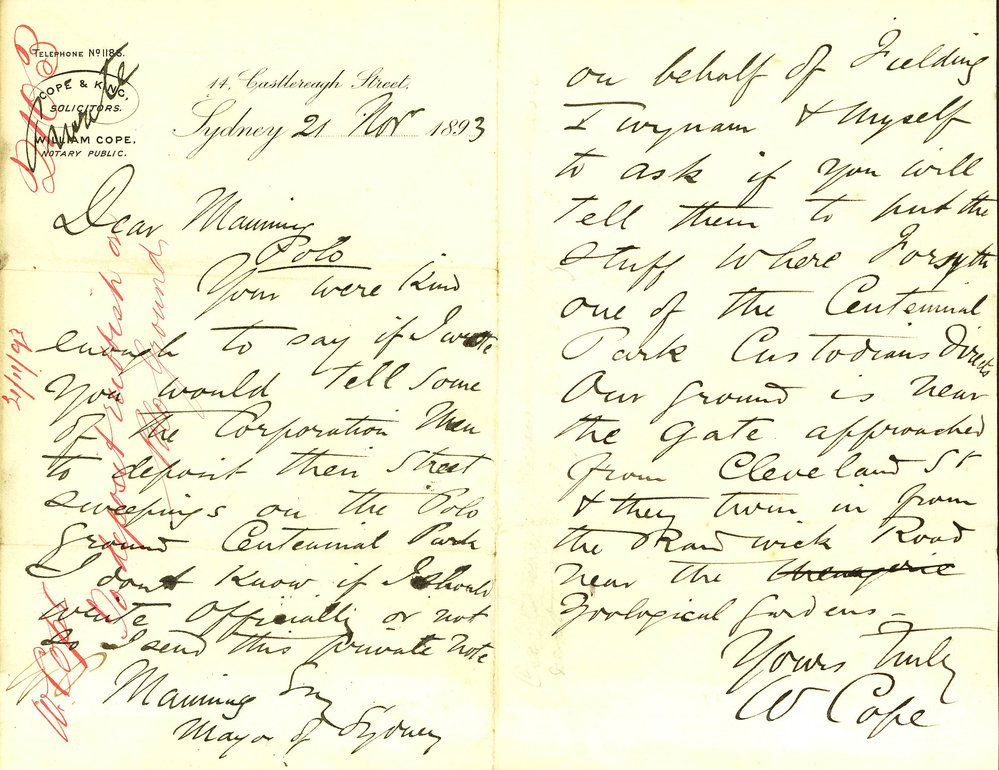 TELEPHONE No 1185.
COPE & KING,
SOLICITORS.
WILLIAM COPE,
NOTARY PUBLIC.
14, Castlereagh Street,
Sydney 21 Nov 1893
Dear Manning
Polo
You were kind
enough to say if I wrote
you would tell some
of the Corporation Men
to deposit their Street
sweepings on the Polo
Ground Centennial Park
I dont know if I should
write officially or not
So I send this private note
Manning Esq
Mayor of Sydney
on behalf of Fielding
Twynam & Myself
to ask if you will
tell them to put the
stuff where Forsyth
one of the Centennial
Park Custodians directs
Our ground is near
the gate approached
from Cleveland St
& they turn in from
the Randwick Road
near the menagerie
Zoological Gardens -
Yours truly
W Cope
21/11/93
W. Cope
To deposit rubbish on
Polo ground